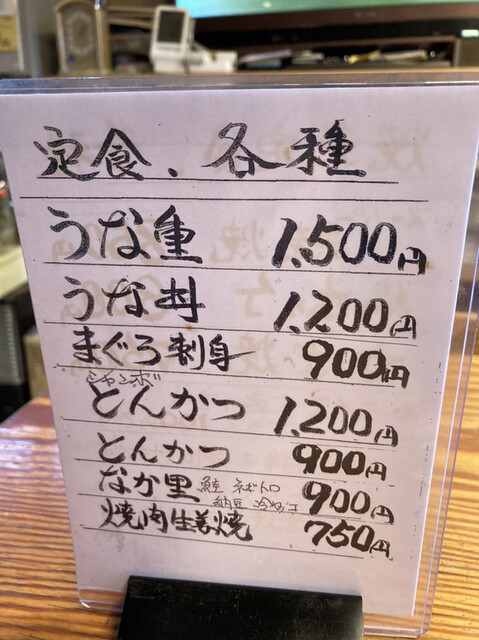 定食、各種
うな重 1,500円
うな丼 1,200円
まぐろ刺身 900円
ジャンボ
とんかつ 1,200円
とんかつ 900円
なか里 鮭 ネギトロ 900円
納豆 冷やっこ
焼肉生姜焼 750円